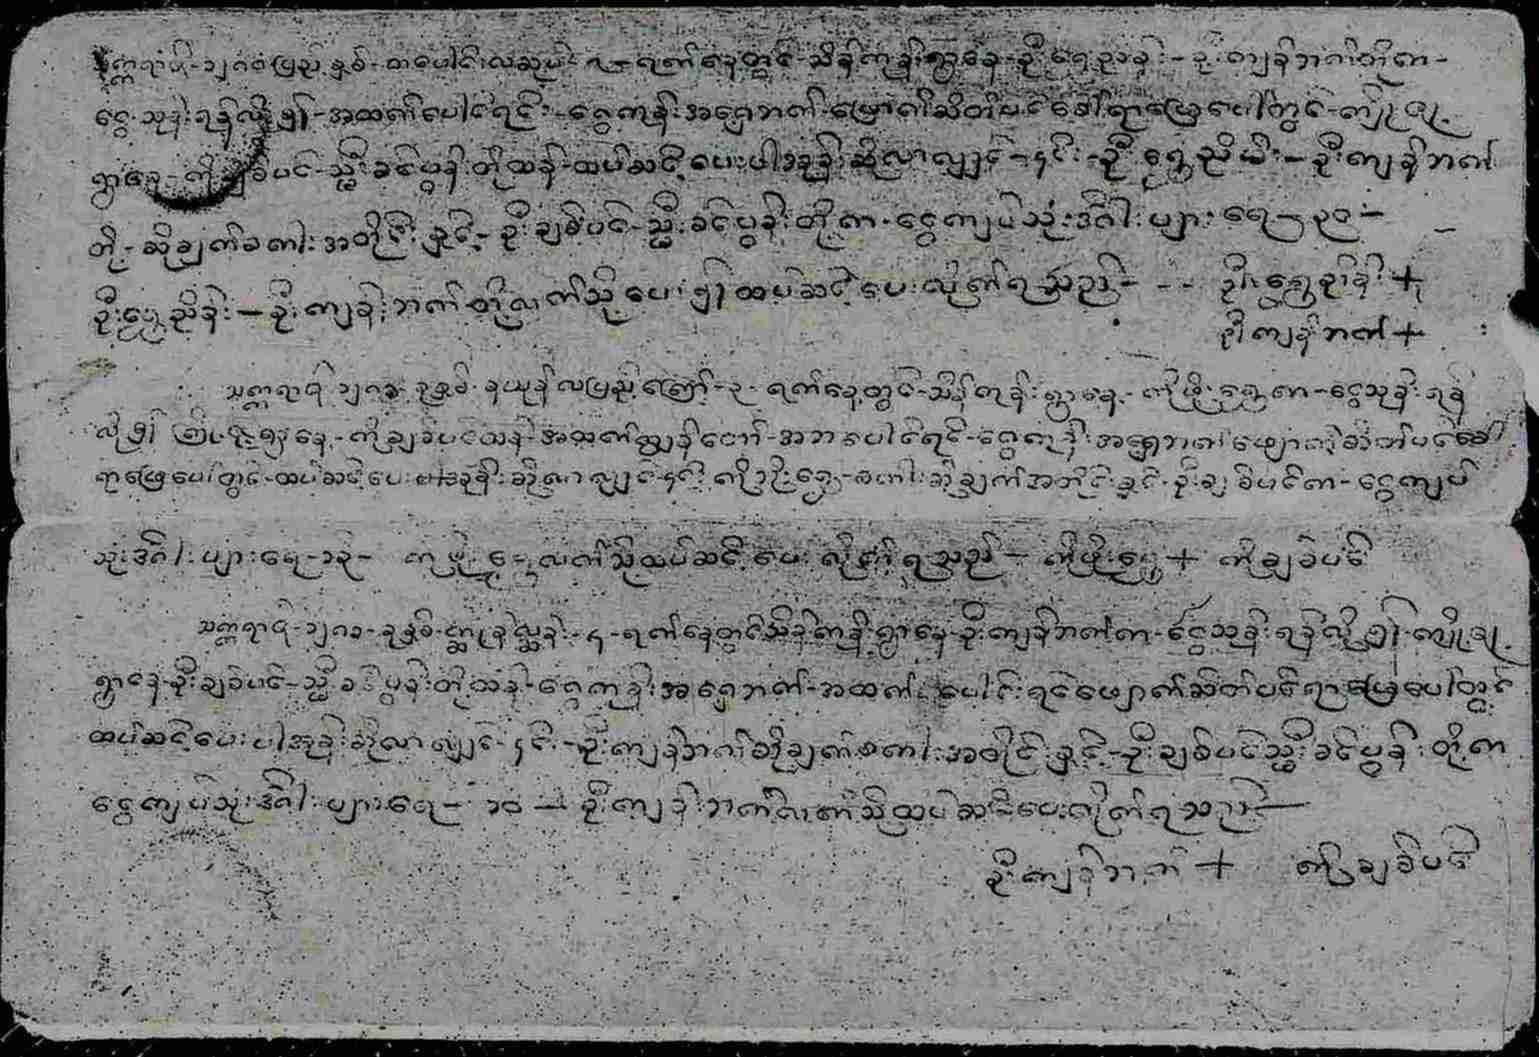 သက္ကရာဇ်-၁၂၈၀ ပြည့်နှစ်-တပေါင်းလဆုပ်-ရက်နေ့တွင်-သိန်ကုန်းရွာနေ-ဦးရွှေညှန်း-ဦးကျန်ဘက်တို့က-
ငွေသုန်းရန်လို၍-အထက်ပေါင်ရင်း-ငွေကုန်းအရှေ့ဘက်-မြောက်ဆိတ်ပင်ခေါ်ရာမြေပေါ်တွင်-ကျို့ဇု့
ရွာနေ-ကိုချစ်ပင်-ညှီးခင်ပွန်းတို့ထန်-ထပ်ဆင့်ပေးပါအုန်းဆိုလာလျှင်-၄င်း-ဦးရွှေညှိမ်း-ဦးကျန်ဘက်
တို့-ဆိုချက်ခကါးအတိုင်းနှင့်-ဦးချစ်ပင်-ညှီးခင်ပွန်းတို့က-ငွေကျပ်သုံးဒင်္ဂါးပျားရေ-၃၀-
ဦးရွှေညှိန်း-ဦးကျန်းဘက်တို့လက်သို့ပေး၍ထပ်ဆင့်ပေးလိုက်ရသည်- -- ဦးရွှေညှန်း +
ဦးကျန်ဘက် +
သက္ကရာဇ်၁၂၈၁-ခုနှစ်-နယုန်လပြည့်ကြော်-၃-ရက်နေ့တွင်-သိန်ကုန်းရွာနေ-ကိုဖိုးရွှေက-ငွေသုန်းရန်
လို၍ ကျို့ဇု့ရွာနေ-ကိုချစ်ပင်ထန်-အထက်ညွှန်တော်-အဘပေါင်ရင်-ငွေကုန်းအရှေ့ဘက်မျောက်ဆိတ်ပင်ခေါ်
ရာမြေပေါ်တွင်-ထပ်ဆင့်ပေးပါအုန်းဆိုလာလျှင်-၄င်းကိုဘိုးရွှေ-စကါးဆိုချက်အတိုင်းနှင့်-ဦးချစ်ပင်က-ငွေကျပ်
သုံးဒင်္ဂါးပျားရေ-၁၃- ကိုဖိုးရွှေလက်သို့ထပ်ဆင့်ပေးလိုက်ရသည်- ကိုဖိုးရွှေ + ကိုချစ်ပင်
သက္ကရာဇ်-၁၂၈၁-ခုနှစ်-ဇွန်လဆန်း-၄-ရက်နေ့တွင်သိန်ကုန်းရွာနေ-ဦးကျန်ဘက်က-ငွေသုန်းရန်လို၍-ကျို့ဇု့
ရွာနေ-ဦးချစ်ပင်-ညှီးခင်ပွန်းတို့ထန်-ငွေကုန်းအရှေ့ဘက်-အထက်ပေါင်းရင်မျောက်ဆိတ်ပင်ရာမြေပေါ်တွင်
ထပ်ဆင့်ပေးပါအုန်းဆိုလာလျှင်-၄င်း-ဦးကျန်ဘက်ဆိုချက်စကါးအတိုင်းနှင့်-ဦးချစ်ပင်ညှီးခင်ပွန်းတို့က
ငွေကျပ်သုံးဒင်္ဂါးပျားရေ-၁၀-ဦးကျန်းဘက်လက်သို့ထပ်ဆင့်ပေးလိုက်ရသည်-
ဦးကျန်ဘက် + ကိုချစ်ပင်